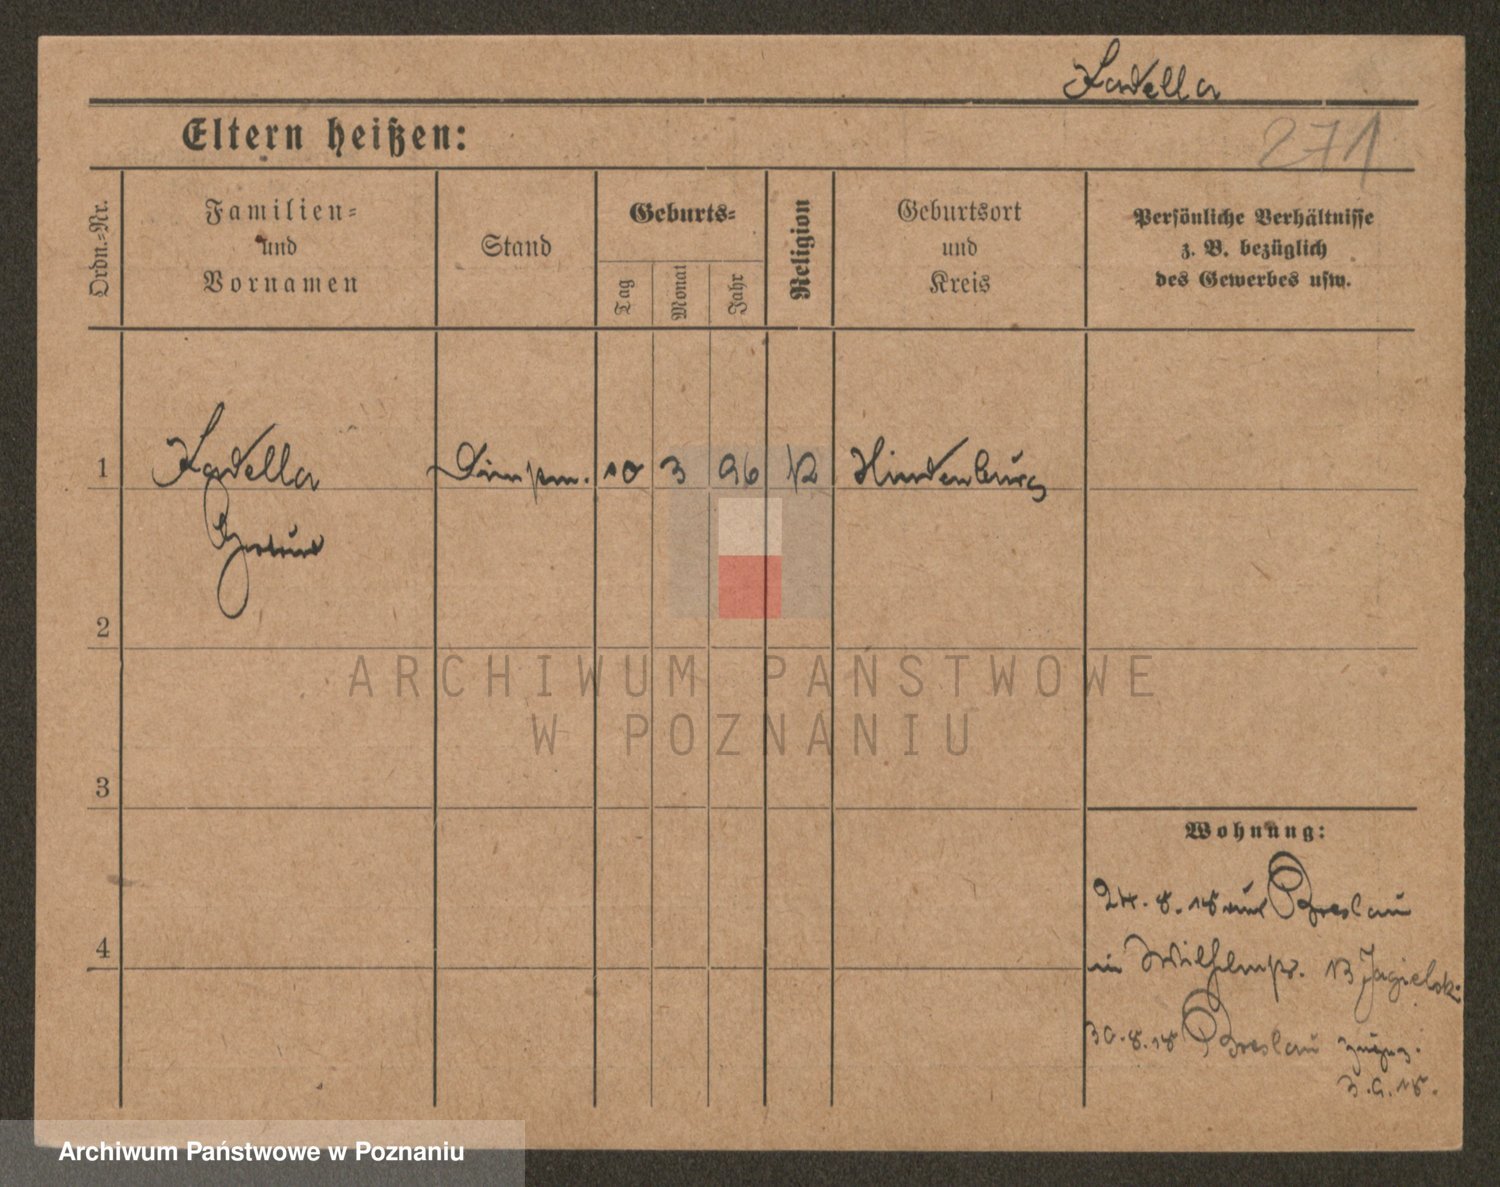 Kadella
271
Eltern heißen:
Ordn.=Nr.
Familien=
und
Vornamen
Stand
Geburts=
Tag
Monat
Jahr
Religion
Geburtsort
und
Kreis
Persönliche Verhältnisse
z. B. bezüglich
des Gewerbes usw.
1
Kadella
10
3
96
Hindenburg
2
ARCHIWUM PAŃSTWOWE
W POZNANIU
3
Wohnung:
24.8.18 aus Breslau
4
in Wilhelmstr. 13 Jagielsk.
30.8.18 Breslau
3.9.18.
Archiwum Państwowe w Poznaniu